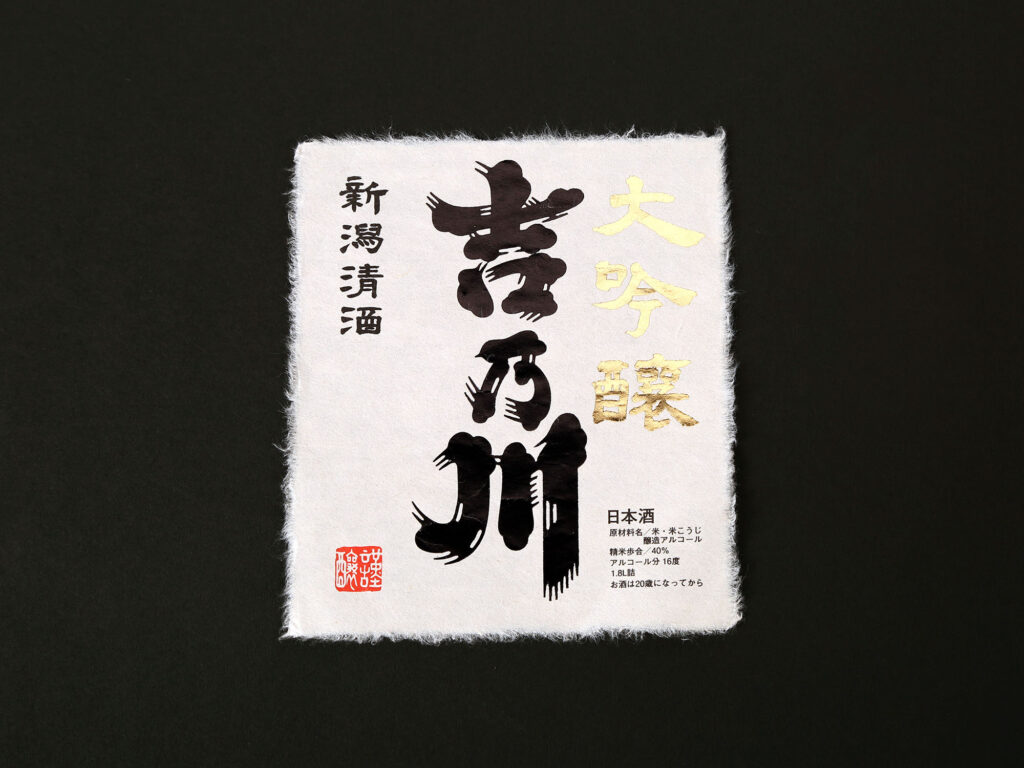 大吟醸
吉乃川
新潟清酒
謹醸
日本酒
原材料名／米・米こうじ
醸造アルコール
精米歩合／40%
アルコール分 16度
1.8L詰
お酒は20歳になってから